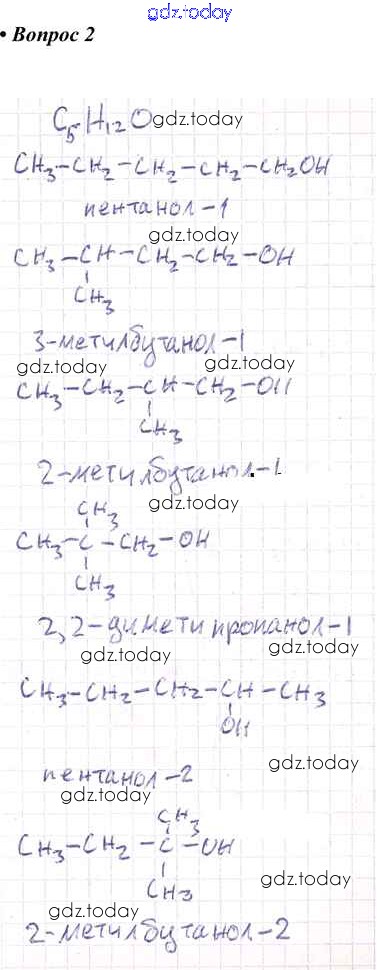 gdz.today
• Вопрос 2
C5H12O gdz.today
CH3-CH2-CH2-CH2-CH2OH
пентанол-1
gdz.today
CH3-CH-CH2-CH2-OH
CH3
3-метилбутанол-1
gdz.today gdz.today
CH3-CH2-CH-CH2-OH
CH3
2-метилбутанол-1
CH3
gdz.today
CH3-C-CH2-OH
CH3
2,2-димети пропанол-1
gdz.today gdz.today
CH3-CH2-CH2-CH-CH3
OH
gdz.today
пентанол-2
gdz.today
CH3
CH3-CH2-C-OH
CH3
gdz.today
gdz.today
2-метилбутанол-2